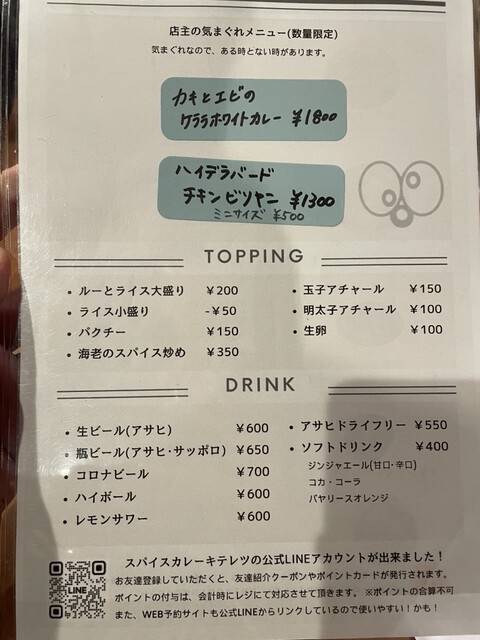 店主の気まぐれメニュー(数量限定)
気まぐれなので、ある時とない時があります。
カキとエビの
ケララホワイトカレー ¥1800
ハイデラバード
チキンビリヤニ ¥1300
ミニサイズ ¥500
TOPPING
・ルーとライス大盛り ¥200
・ライス小盛り -¥50
・パクチー ¥150
・海老のスパイス炒め ¥350
・玉子アチャール ¥150
・明太子アチャール ¥100
・生卵 ¥100
DRINK
・生ビール(アサヒ) ¥600
・瓶ビール(アサヒ・サッポロ) ¥650
・コロナビール ¥700
・ハイボール ¥600
・レモンサワー ¥600
・アサヒドライフリー ¥550
・ソフトドリンク ¥400
ジンジャエール(甘口・辛口)
コカ・コーラ
バヤリースオレンジ
LINE
スパイスカレーキテレツの公式LINEアカウントが出来ました！
お友達登録していただくと、友達紹介クーポンやポイントカードが発行されます。
ポイントの付与は、会計時にレジにて対応させて頂きます。 ※ポイントの合算不可
また、WEB予約サイトも公式LINEからリンクしているので使いやすい！かも！